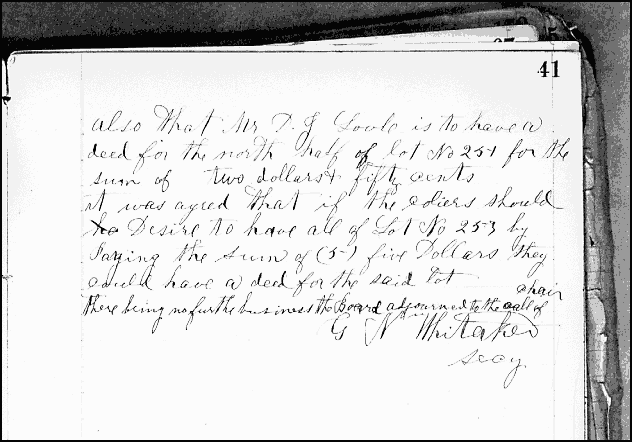 41
also that Mr D. J. is to have a
deed for the north half of lot No 251 for the
sum of two dollars & fifty cents
it was agred that if the should
Desire to have all of Lot No 253 by
Paying the sum of (5) five Dollars they
could have a ded for the said lot
chair
there being no furthe business the Board adjourned to the call of
G N Whitaker
secy